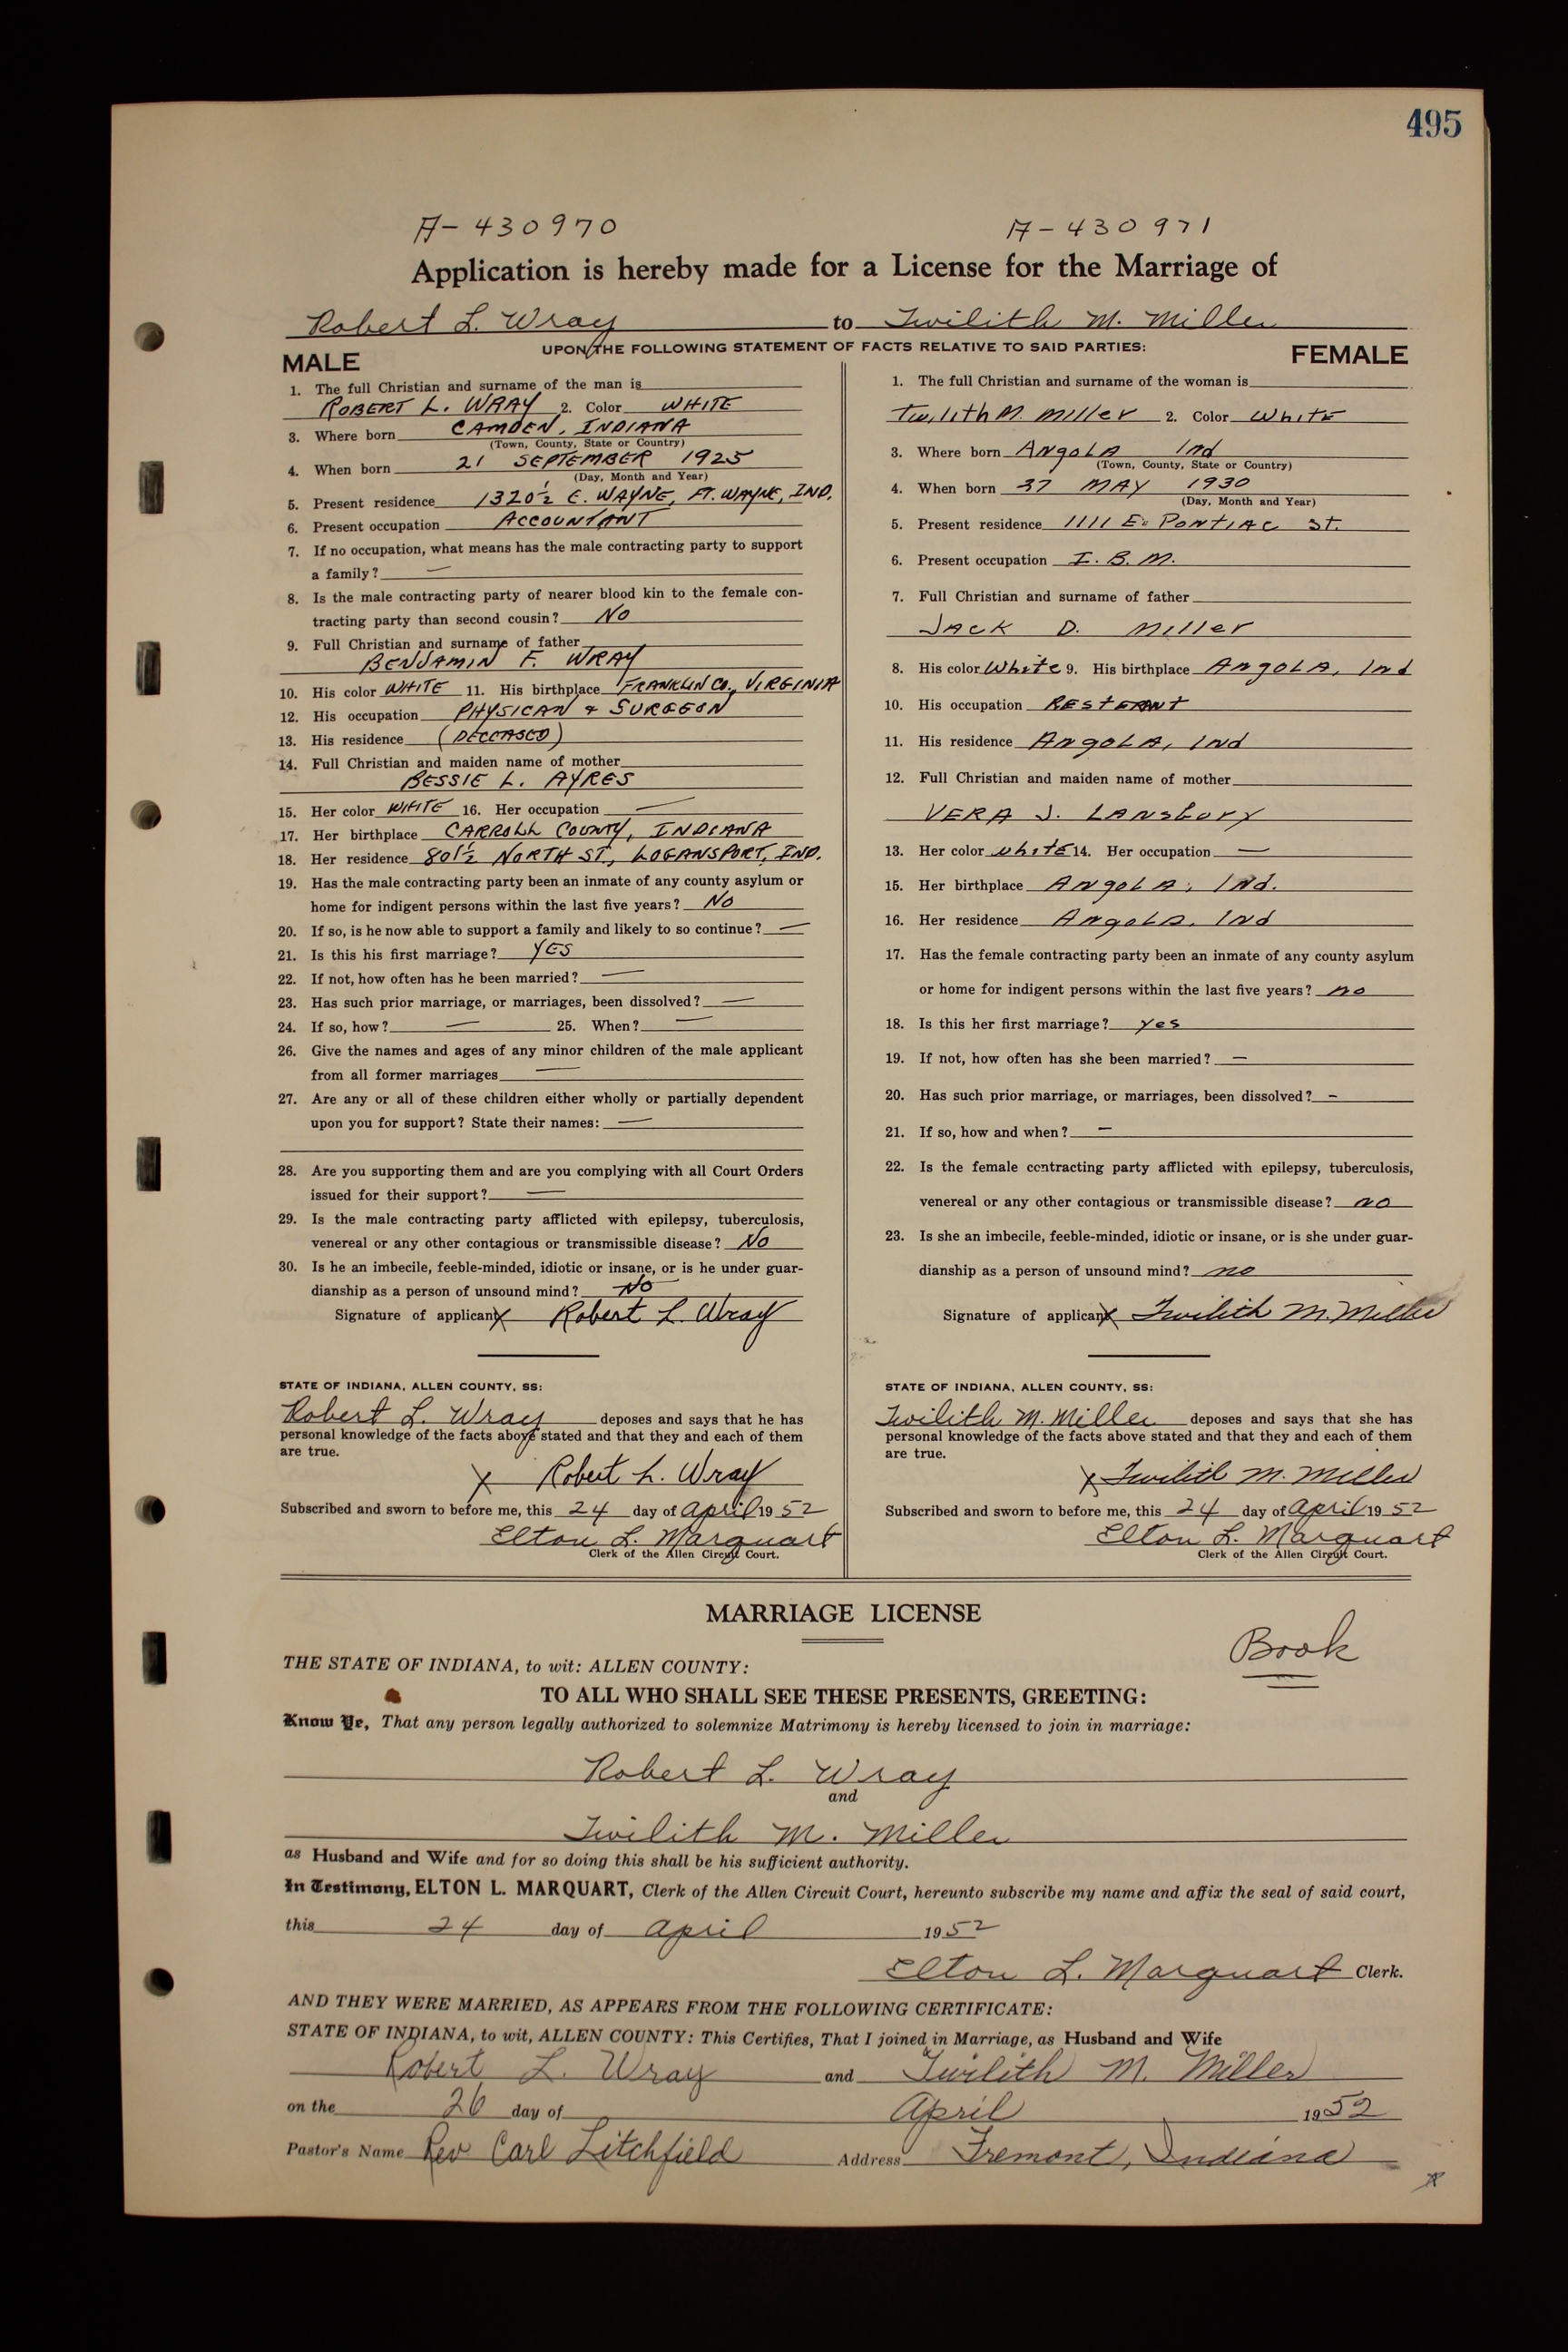 495
A-430970 A-430971
Application is hereby made for a License for the Marriage of
Robert L. Wray to Twilith M. Miller
UPON THE FOLLOWING STATEMENT OF FACTS RELATIVE TO SAID PARTIES:
MALE
1. The full Christian and surname of the man is
ROBERT L. WRAY 2. Color WHITE
3. Where born CAMDEN, INDIANA
(Town, County, State or Country)
4. When born 21 SEPTEMBER 1925
(Day, Month and Year)
5. Present residence 1320½ E. WAYNE, FT. WAYNE, IND.
6. Present occupation ACCOUNTANT
7. If no occupation, what means has the male contracting party to support
a family? —
8. Is the male contracting party of nearer blood kin to the female con-
tracting party than second cousin? No
9. Full Christian and surname of father
BENJAMIN F. WRAY
10. His color WHITE 11. His birthplace FRANKLIN CO., VIRGINIA
12. His occupation PHYSICAN & SURGEON
13. His residence (DECEASED)
14. Full Christian and maiden name of mother
BESSIE L. AYRES
15. Her color WHITE 16. Her occupation —
17. Her birthplace CARROLL COUNTY, INDIANA
18. Her residence 801½ NORTH ST., LOGANSPORT, IND.
19. Has the male contracting party been an inmate of any county asylum or
home for indigent persons within the last five years? No
20. If so, is he now able to support a family and likely to so continue? —
21. Is this his first marriage? YES
22. If not, how often has he been married? —
23. Has such prior marriage, or marriages, been dissolved? —
24. If so, how? — 25. When? —
26. Give the names and ages of any minor children of the male applicant
from all former marriages —
27. Are any or all of these children either wholly or partially dependent
upon you for support? State their names: —
28. Are you supporting them and are you complying with all Court Orders
issued for their support? —
29. Is the male contracting party afflicted with epilepsy, tuberculosis,
venereal or any other contagious or transmissible disease? No
30. Is he an imbecile, feeble-minded, idiotic or insane, or is he under guar-
dianship as a person of unsound mind? No
Signature of applicant X Robert L. Wray
STATE OF INDIANA, ALLEN COUNTY, SS:
Robert L. Wray deposes and says that he has
personal knowledge of the facts above stated and that they and each of them
are true.
X Robert L. Wray
Subscribed and sworn to before me, this 24 day of April 1952
Elton L. Marquart
Clerk of the Allen Circuit Court.
FEMALE
1. The full Christian and surname of the woman is
Twilith M. Miller 2. Color White
3. Where born Angola Ind
(Town, County, State or Country)
4. When born MAY 1930
(Day, Month and Year)
5. Present residence 1111 E. Pontiac St.
6. Present occupation I. B. M.
7. Full Christian and surname of father
Jack D. Miller
8. His color White 9. His birthplace Angola, Ind
10. His occupation
11. His residence Angola, Ind
12. Full Christian and maiden name of mother
VERA J. Lansbury
13. Her color white 14. Her occupation —
15. Her birthplace Angola, Ind.
16. Her residence Angola, Ind
17. Has the female contracting party been an inmate of any county asylum
or home for indigent persons within the last five years? no
18. Is this her first marriage? yes
19. If not, how often has she been married? —
20. Has such prior marriage, or marriages, been dissolved? -
21. If so, how and when? —
22. Is the female contracting party afflicted with epilepsy, tuberculosis,
venereal or any other contagious or transmissible disease? no
23. Is she an imbecile, feeble-minded, idiotic or insane, or is she under guar-
dianship as a person of unsound mind? no
Signature of applicant X Twilith M. Miller
STATE OF INDIANA, ALLEN COUNTY, SS:
Twilith M. Miller deposes and says that she has
personal knowledge of the facts above stated and that they and each of them
are true.
X Twilith M. Miller
Subscribed and sworn to before me, this 24 day of April 1952
Elton L. Marquart
Clerk of the Allen Circuit Court.
MARRIAGE LICENSE
Book
THE STATE OF INDIANA, to wit: ALLEN COUNTY:
TO ALL WHO SHALL SEE THESE PRESENTS, GREETING:
Know Ye, That any person legally authorized to solemnize Matrimony is hereby licensed to join in marriage:
Robert L. Wray
and
Twilith M. Miller
as Husband and Wife and for so doing this shall be his sufficient authority.
In Testimony, ELTON L. MARQUART, Clerk of the Allen Circuit Court, hereunto subscribe my name and affix the seal of said court,
this 24 day of April 1952
Elton L. Marquart Clerk.
AND THEY WERE MARRIED, AS APPEARS FROM THE FOLLOWING CERTIFICATE:
STATE OF INDIANA, to wit, ALLEN COUNTY: This Certifies, That I joined in Marriage, as Husband and Wife
Robert L. Wray and Twilith M. Miller
on the 26 day of April 1952
Pastor's Name Rev Carl Litchfield Address Fremont, Indiana